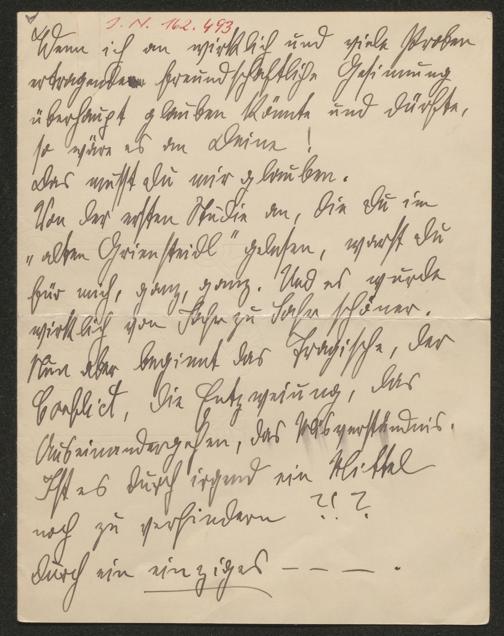 I. N. 162.493
Wenn ich an wirklich und viele Proben
ertragende freundschaftliche Gesinnung
überhaupt glauben könnte und dürfte,
so wäre es an Deine!
Das musst Du mir glauben.
Von der ersten Studie an, die Du im
„alten Griensteidl" gelesen, warst Du
für mich, ganz, ganz. Und es wurde
wirklich von Jahr zu Jahr schöner.
Nun aber beginnt das Tragische, der
Conflict, die Entzweiung, das
Auseinandergehen, das Misverständnis.
Ist es durch irgend ein Mittel
noch zu verhindern ?!?
Durch ein einziges — — — .